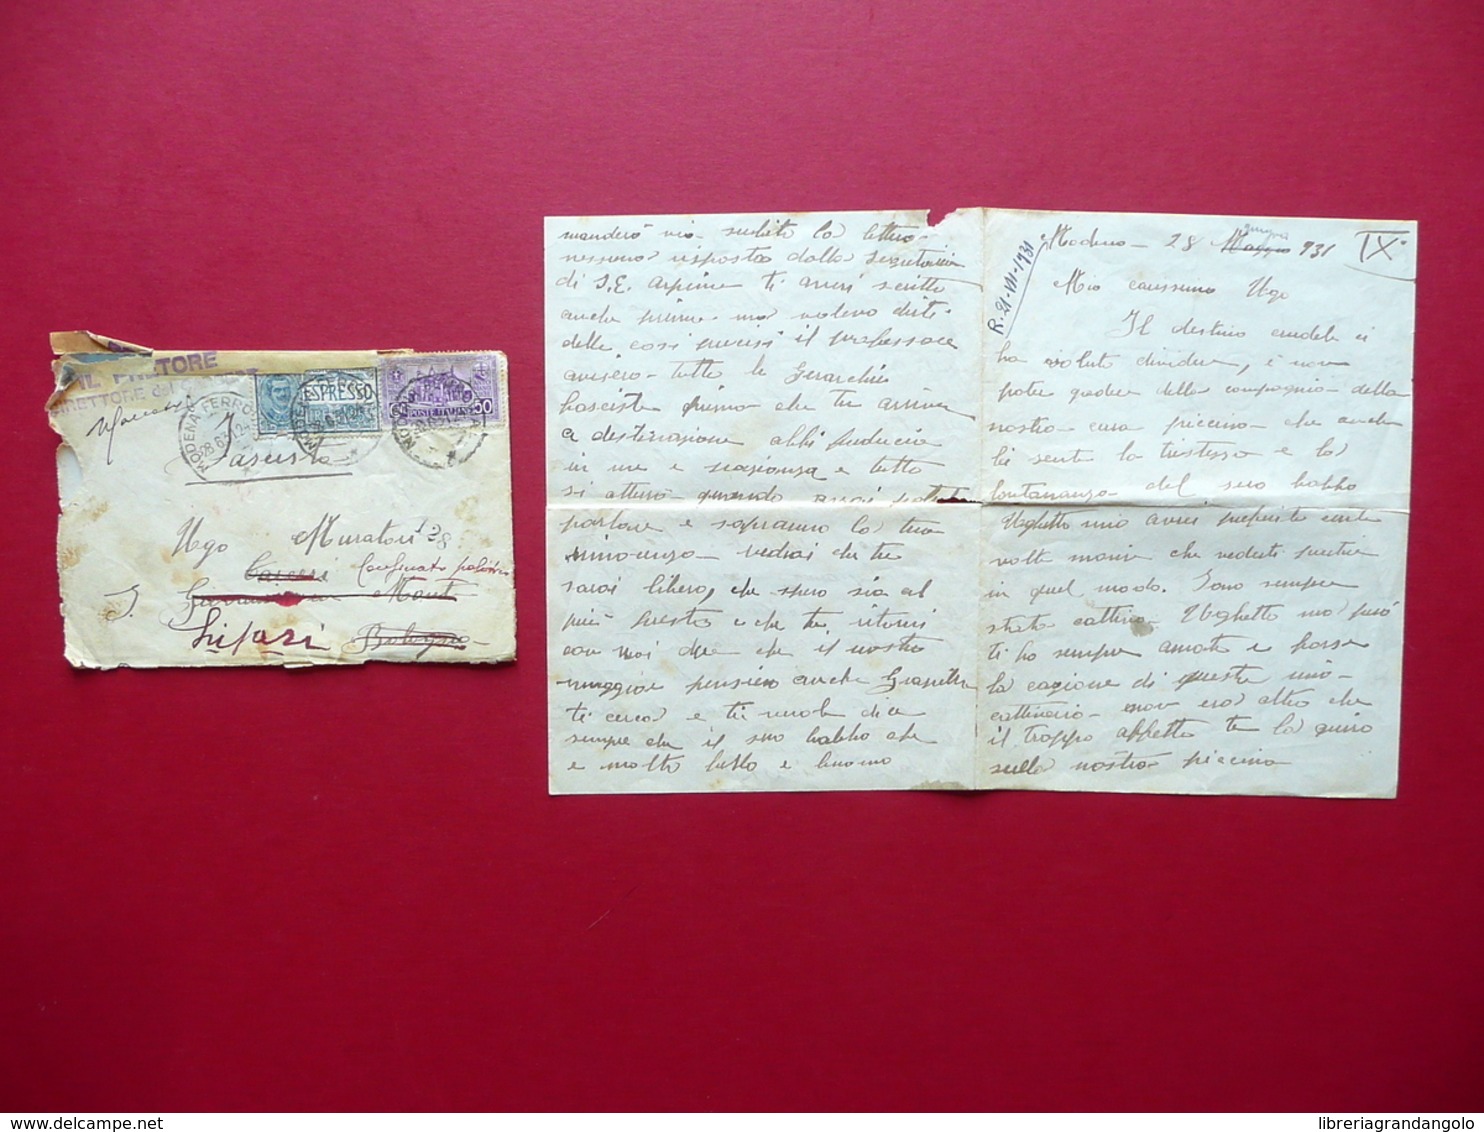 IL PRETORE
DIRETTORE del
MODENA FERRO
28.6.31.12
ESPRESSO
POSTE ITALIANE 50
Fascista
Ugo Muratori
Carceri Confinato politico
S. Giovanni in Monte
Lipari Bologna
manderò via subito la lettera
nessuna risposta dalla Segretaria
di S.E. Arpinati ti avrei scritto
anche prima ma volevo dirti
delle cosi precisi il professore
avisera tutte le Gerarchie
fasciste prima che tu arrivi
a destinazione abbi fiducia
in me e pazienza e tutto
si attera quando avrai potuto
parlare e sapranno la tua
innocenza vedrai che tu
sarai libero, che spero sia al
più presto e che tu ritorni
con noi due che il nostro
maggior pensiero anche Graziella
ti cerca e ti vuole dice
sempre che il suo babbo che
e molto bello e buono
R. 21-VII-1931
Modena 28 Maggio giugno 931 IX°
Mio carissimo Ugo
Il destino crudele ci
ha voluto dividere, e non
poter godere della compagnia della
nostra cara piccina che anche
lei sente la tristezza e la
lontananza del suo babbo
Ughetto mio avrei preferito cento
volte morire che vederti partire
in quel modo. Sono sempre
stata cattiva Ughetto ma però
ti ho sempre amato e forse
la cagione di questa mia
cattiveria non era altro che
il troppo affetto te lo giuro
sulla nostra piccina
libreriagrandangolo
www.delcampe.net